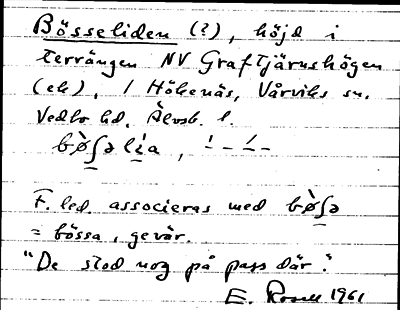 Bösseliden (?), höjd i
terrängen NV Graftjärnshögen
(ek), i Hökenäs, Vårviks sn.
Vedbo hd. Älvsb. l.
bø̀ʃə lìa, ╵ – ╵ –
F. led. associeras med bø̀ʃə
= bössa, gevär.
"De stod nog på pass där".
E. 1961